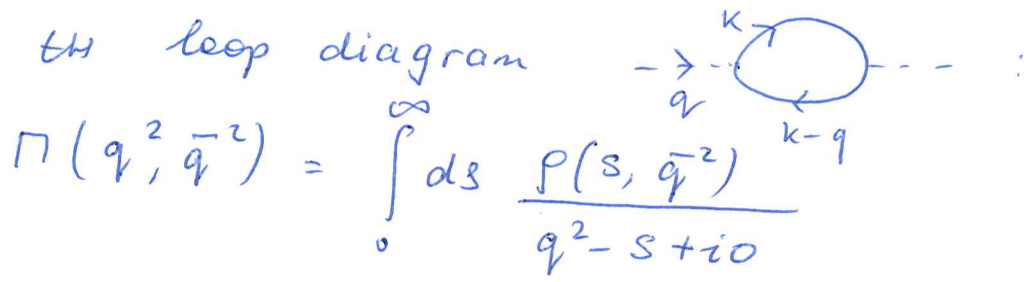 loop diagram k
q
k-q :
Π(q², q̄²) = ∫₀^∞ ds ρ(s, q̄²) / (q² - s + i0)